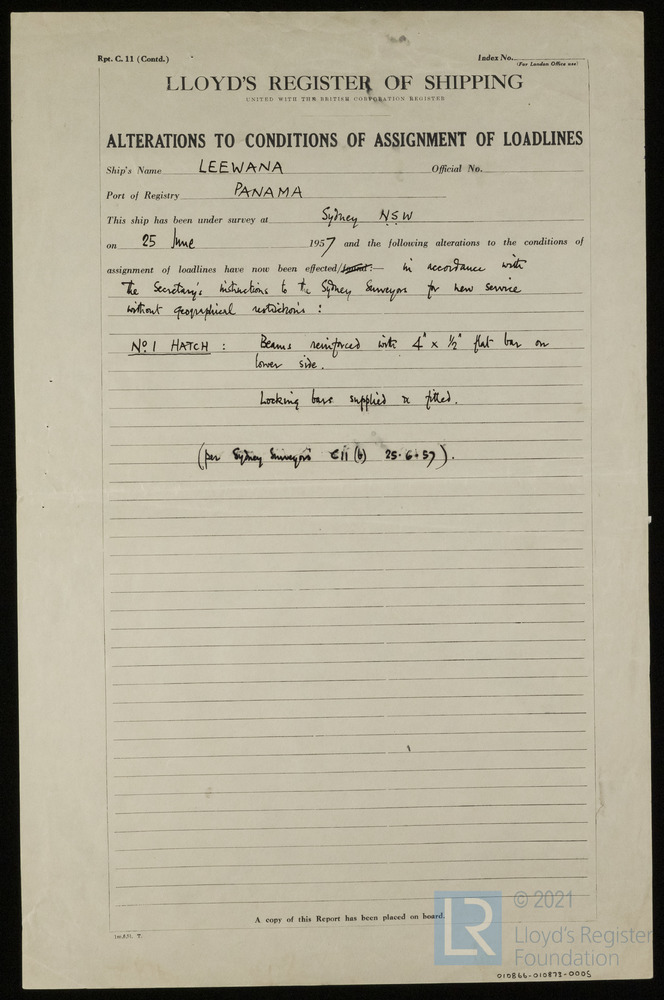 Rpt. C. 11 (Contd.)
Index No.
(For London Office use)
LLOYD'S REGISTER OF SHIPPING
UNITED WITH THE BRITISH CORPORATION REGISTER
ALTERATIONS TO CONDITIONS OF ASSIGNMENT OF LOADLINES
Ship's Name LEEWANA Official No.
Port of Registry PANAMA
This ship has been under survey at Sydney NSW
on 25 June 1957 and the following alterations to the conditions of
assignment of loadlines have now been effected/found:— in accordance with
the Secretary's instructions to the Sydney Surveyors for new service
without geographical restrictions :
No 1 HATCH : Beams reinforced with 4" x ½" flat bar on
lower side.
Locking bars supplied & fitted.
(per Sydney Surveyors C11 (b) 25.6.57).
A copy of this Report has been placed on board.
© 2021
LR
Lloyd's Register
Foundation
010866-010873-0005